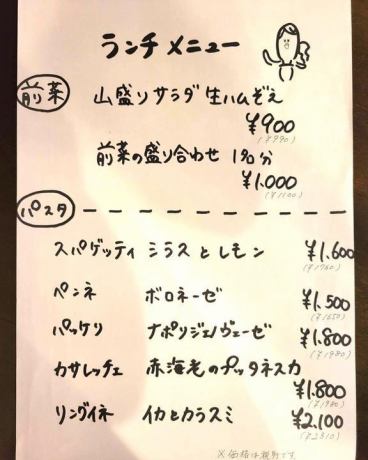 ランチメニュー
前菜
山盛りサラダ 生ハムぞえ
¥900
(¥990)
前菜の盛り合わせ 1名分
¥1.000
(¥1100)
パスタ
スパゲッティ シラスとレモン ¥1.600
(¥1760)
ペンネ ボロネーゼ ¥1.500
(¥1650)
パッケリ ナポリジェノヴェーゼ ¥1.800
(¥1980)
カサレッチェ 赤海老のプッタネスカ
¥1.800
(¥1980)
リングイネ イカとカラスミ ¥2.100
(¥2310)
※価格は税別です